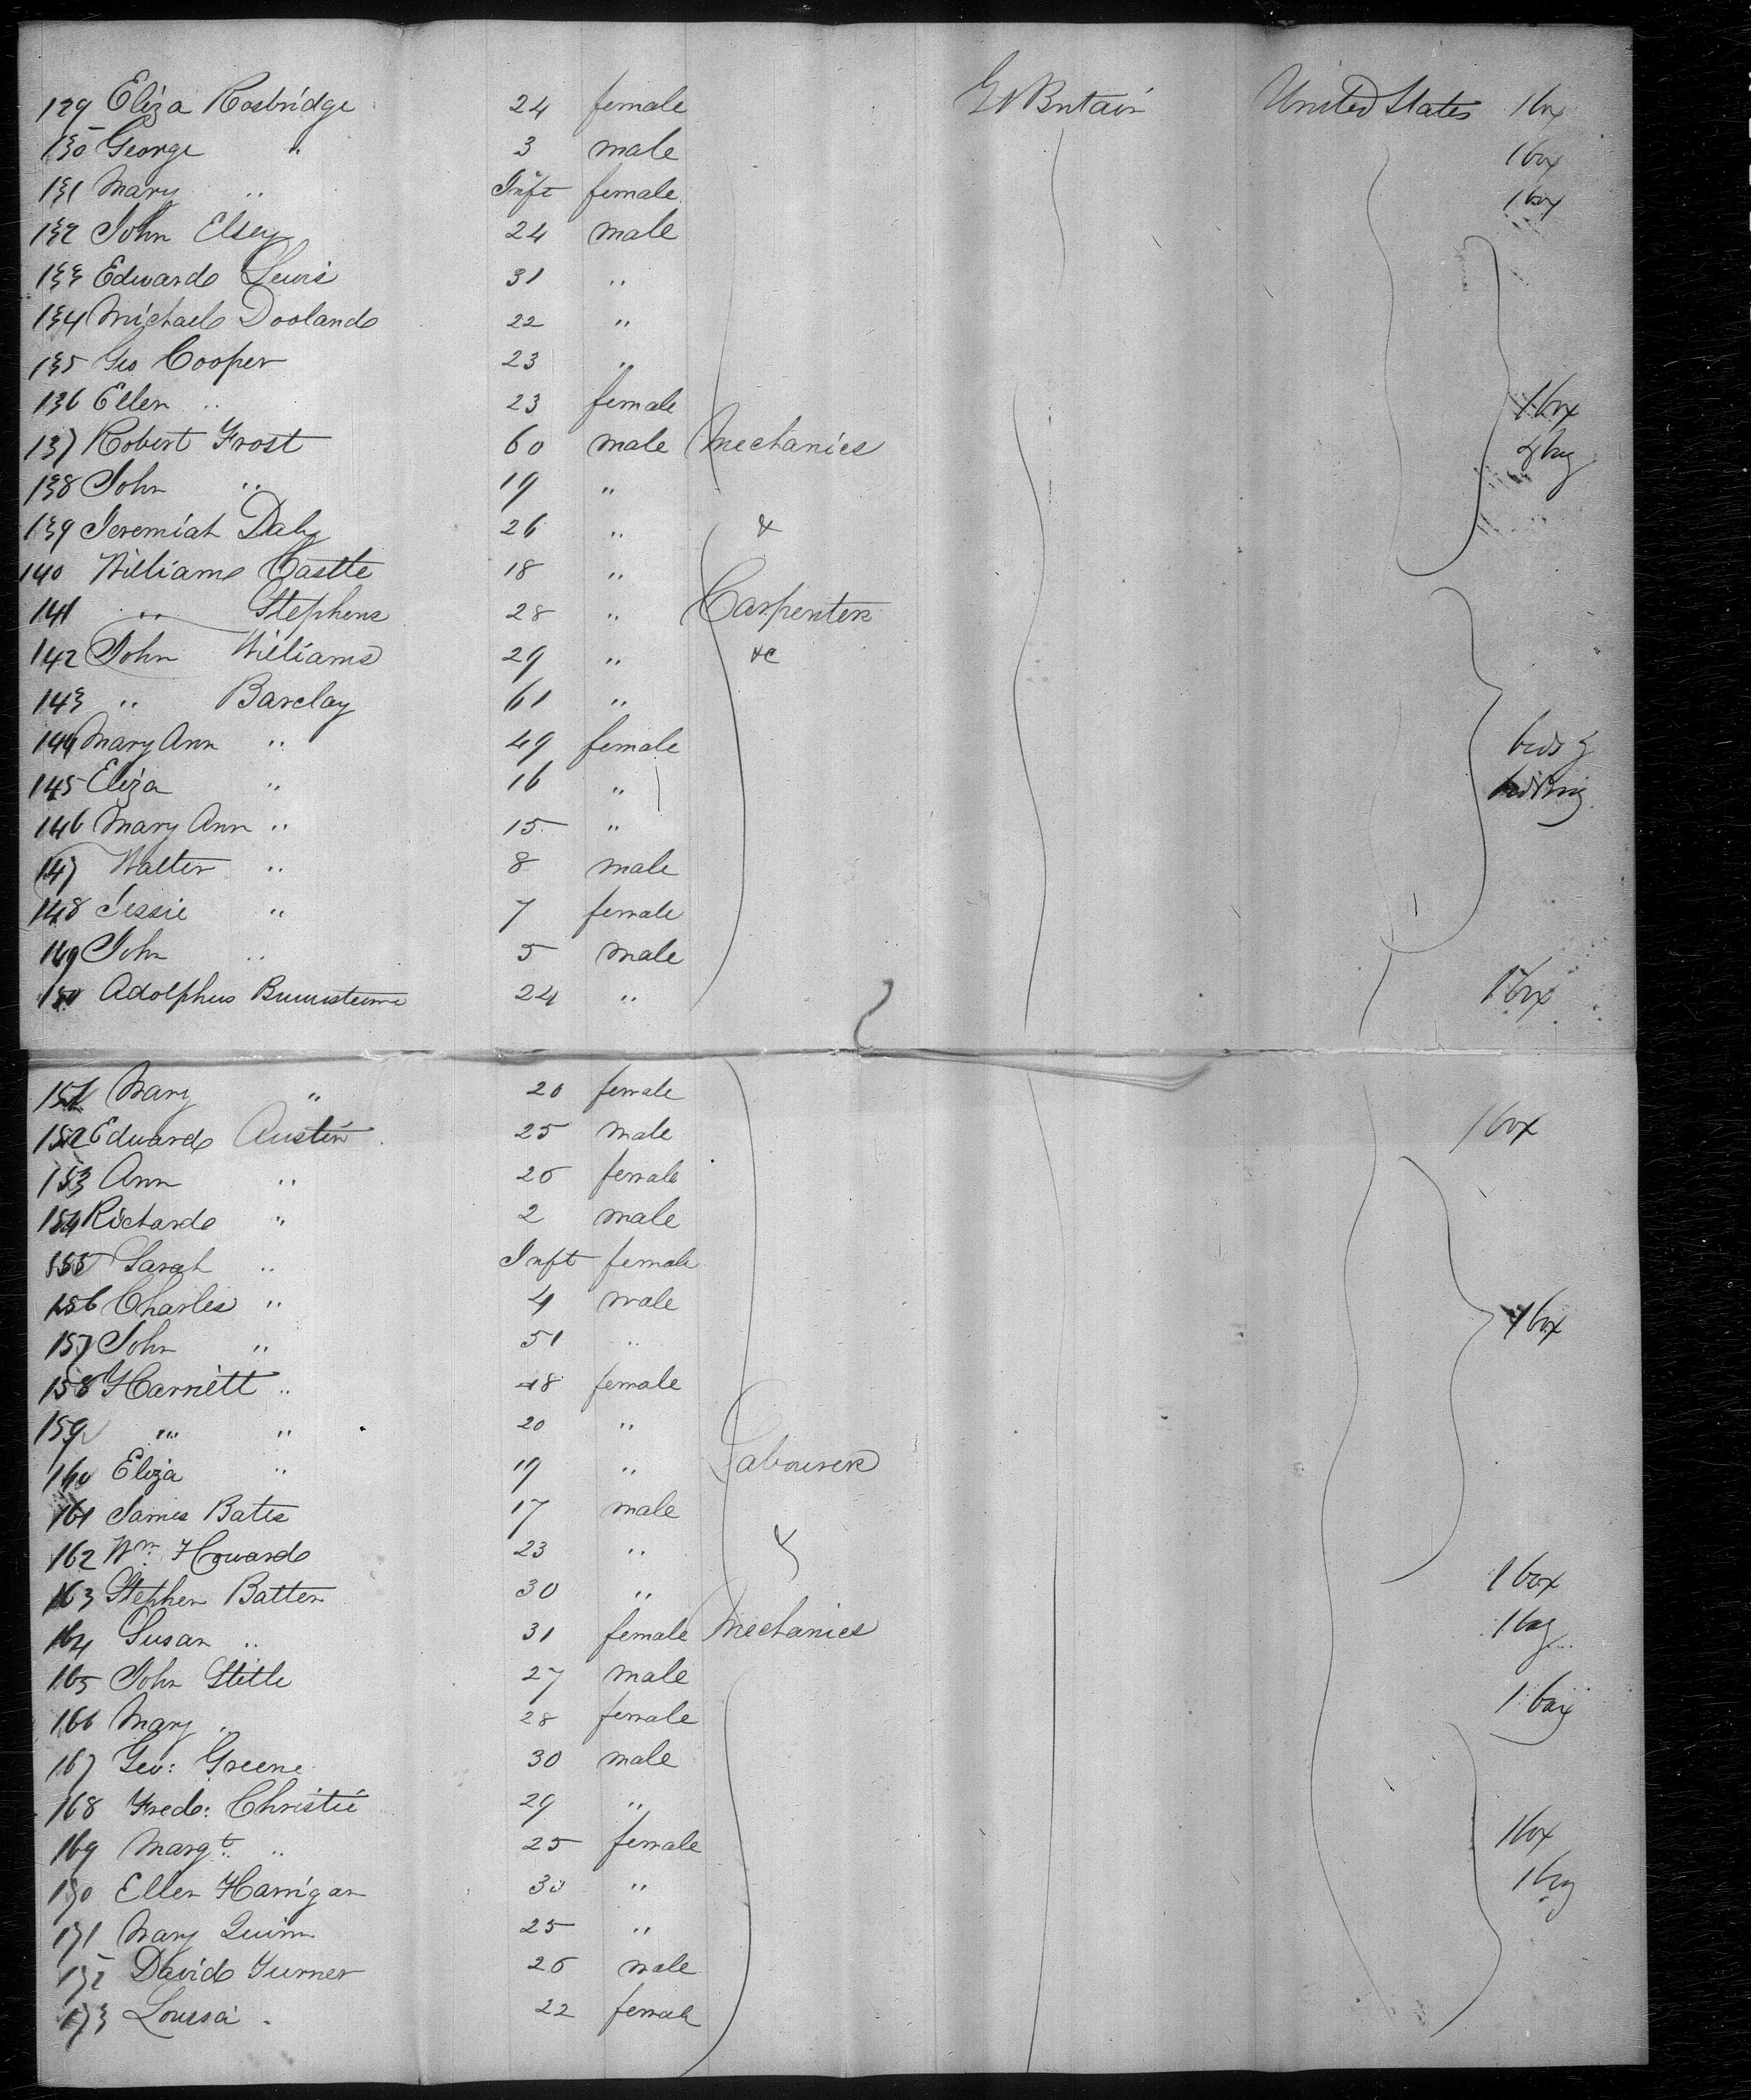 129 Eliza Rosbridge 24 female Gt Britain United States 1 box
130 George " 3 male 1 box
131 Mary " Inft female 1 box
132 John Elsey 24 male
133 Edward Lewis 31 "
134 Michael Dooland 22 "
135 Geo Cooper 23 "
136 Ellen " 23 female 1 box
137 Robert Frost 60 male Mechanics & bag
138 John " 19 "
139 Jeremiah Daly 26 " &
140 William Castle 18 "
141 " Stephens 28 " Carpenters
142 John Williams 29 " &c
143 " Barclay 61 "
144 Mary Ann " 49 female beds &
145 Eliza " 16 " bedding
146 Mary Ann " 15 "
147 Walter " 8 male
148 Jessie " 7 female
149 John " 5 male
150 Adolphus 24 " 1 box
151 Mary " 20 female
152 Edward Austin 25 male 1 box
153 Ann " 26 female
154 Richard " 2 male
155 Sarah " Inft female
156 Charles " 4 male
157 John " 51 " 1 box
158 Harriett " 48 female
159 " " 20 "
160 Eliza " 19 " Labourers
161 James Bates 17 male
162 Wm. Howard 23 " &
163 Stephen Batten 30 " 1 box
164 Susan " 31 female Mechanics 1 bag
165 John Stitle 27 male
166 Mary " 28 female 1 bag
167 Geo: Greene 30 male
168 Fred: Christie 29 "
169 Margt. " 25 female 1 box
170 Ellen Harrigan 30 " 1 bag
171 Mary Quinn 25 "
172 David Turner 26 male
173 Louisa " 22 female